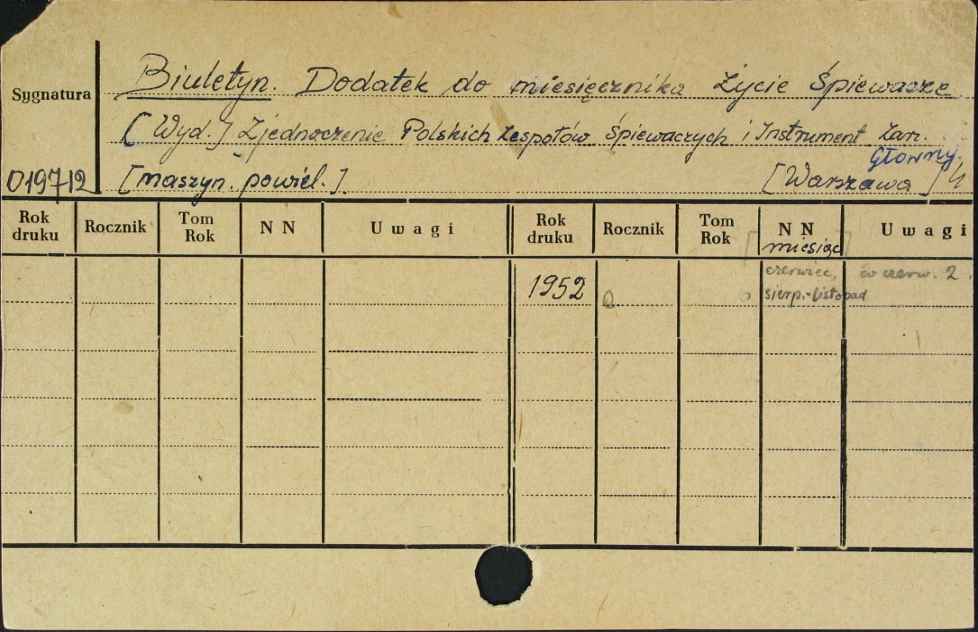 Biuletyn. Dodatek do miesięcznika Życie Śpiewacze
Sygnatura
[Wyd.] Zjednoczenie Polskich Zespołów Śpiewaczych i Instrument. Zarz.
Główny.
019712 [maszyn. powiel.] [Warszawa] 4
Rok druku Rocznik Tom Rok N N Uwagi Rok druku Rocznik Tom Rok N N Uwagi
[miesiąc]
1952 czerwiec, w czerw. 2.
sierp.-listopad